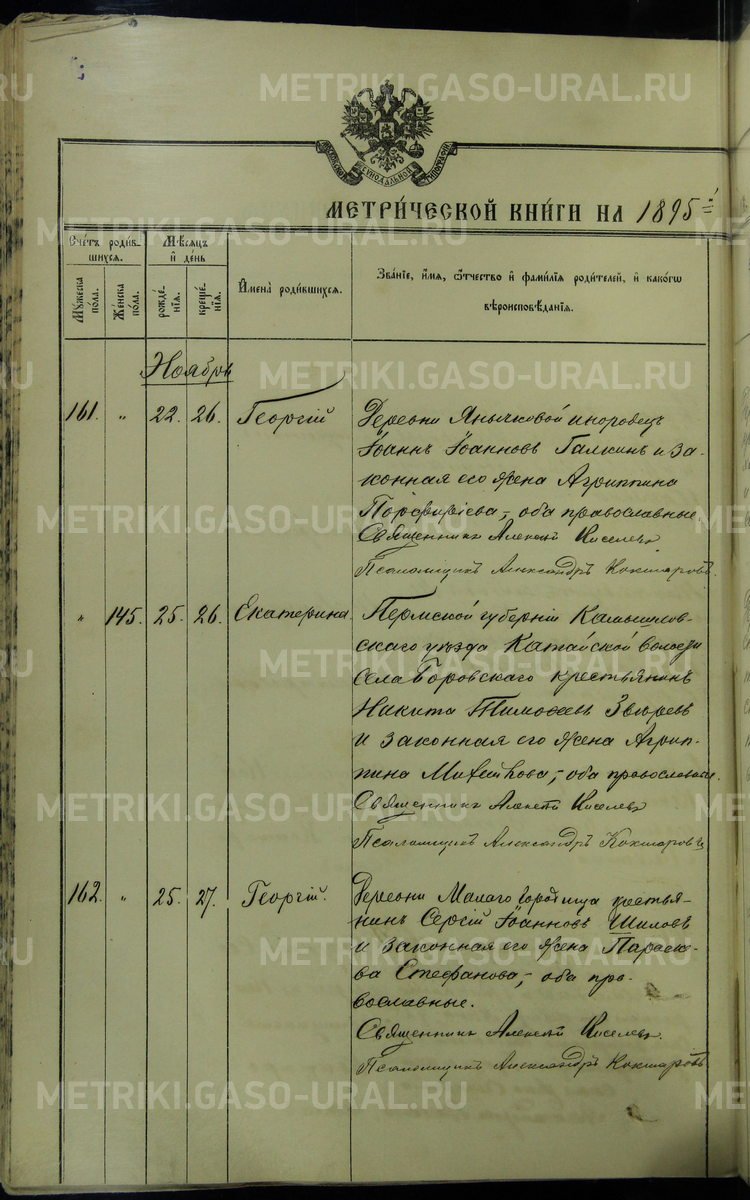 METRIKI.GASO-URAL.RU
МОСКОВСКОЙ СѴНОДАЛЬНОЙ ТИПОГРАФІИ
МЕТРИ́ЧЕСКОЙ КНИ́ГИ НА 1895 =й
Сче́тъ роди́в-
шихся.
Мѣ́сяцъ
и҆ де́нь
И҆мена̀ роди́вшихся.
Зва́ніе, и҆́мя, ѻ҆́тчество и҆ фами́лія роди́телей, и҆ како́гѡ
вѣроисповѣ́данія.
Му́жеска
по́ла.
Же́нска
по́ла.
рожде́-
нія.
креще́-
нія.
Ноябрь
161. " 22. 26. Георгій
Деревни Янычковой инородецъ
Іоаннъ Іоанновъ Галкинъ и за-
конная его жена Агриппина
Порфиріева, оба православные.
Священникъ Алексѣй Киселевъ
Псаломщикъ Александръ Кокшаровъ.
" 145. 25. 26. Екатерина.
Пермской губерніи Камышлов-
скаго уѣзда Катайской волости
села Боровскаго крестьянинъ
Никита Тимоѳеевъ Звѣревъ
и законная его жена Агрип-
пина Михайлова, оба православные.
Священникъ Алексѣй Киселевъ
Псаломщикъ Александръ Кокшаровъ
162. " 25. 27. Георгій.
Деревни Малаго Городища крестья-
нинъ Сергій Іоанновъ Шиловъ
и законная его жена Параске-
ва Стефанова, оба пра-
вославные.
Священникъ Алексѣй Киселевъ.
Псаломщикъ Александръ Кокшаровъ.